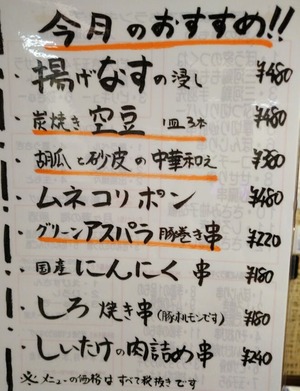 今月のおすすめ!!
・揚げなすの浸し ¥480
・炭焼き空豆 1皿3本 ¥480
・胡瓜と砂皮の中華和え ¥380
・ムネコリポン ¥480
・グリーンアスパラ豚巻き串 ¥220
・国産にんにく串 ¥180
・しろ焼き串(豚ホルモンです) ¥180
・しいたけの肉詰め串 ¥240
※メニューの価格はすべて税抜きです